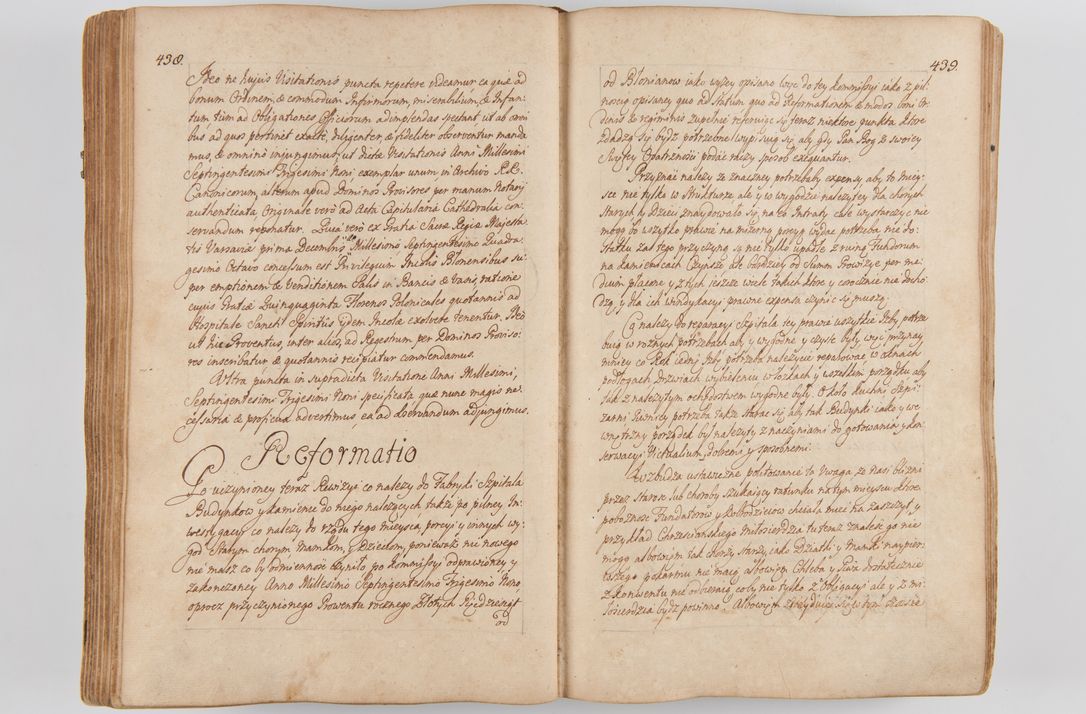 438.
Ideo ne hujus Visitationis puncta repetere videamur ea quæ ad
bonum Ordinem, & commodum Infirmorum, miserabilium, & Infan-
tum tum ad Obligationes Officiorum adimplendas spectant ut ab omni
bus ad quos pertinet exacte, diligenter & fideliter observentur manda
mus, & omnino injungimus, ut dictæ Visitationis Anni Millesimi
Septingentesimi Trigesimi Noni, exemplar unum in Archivo R.R.
Canonicorum, alterum apud Dominos Provisores per manum Notarij
authenticata Originale verò ad Acta Capitularia Cathedralia con-
servandum reponatur. Quia verò ex Gratia Sacræ Regiæ Majesta
tis Varsaviæ prima Decembris Millesimo Septingentesimo Quadra
gesimo Octavo concessum est Privilegium Incolis Błonensibus su
per emptionem & venditionem Salis in Bancis & Vasis, ratione
cujus Gratiæ Quinquaginta Florenos Polonicales quotannis ad
Hospitale Sancti Spiritûs ijdem Incolæ exolvere tenentur. Ideo
ut hic Proventus inter alios, ad Regestrum, per Dominos Proviso-
res inscribatur & quotannis recipiatur commendamus.
Ultra puncta in supradicta Visitatione Anni Millesimi,
Septingentesimi Trigesimi Noni specificata, quæ nunc magis ne-
cessaria & proficua advertimus, ea ad observandum adjungimus.
Reformatio
Po uczynioney teraz Rewizyi co nalezy do Fabryki Szpitala
Budynkow y kamienic do niego nalezących także po pilney In-
westygacyi co nalezy do rządu tego mieysca, porcyi y innych wy-
god Starym chorym, Mamkom, y Dzieciom, ponieważ nic nowego
nie masz co by odmiennosc czyniło po kommissyi odprawioney y
zakonczoney Anno Millesimo Septingentesimo Trigesimo Nono
oprocz przyczynionego Prowentu rocznego Złotych Pięcdziesiąt
od
439.
od Błonianow iako wyzey opisano więc do tey kommissyi iako z pil-
noscią opisaney quo ad statum quo ad Reformationem & modos boni Or-
dinis & regiminis zupełnie referuiąc się teraz niektore punkta ktore
zdadzą się bydz potrzebne wypisuią się aby gdy Pan Bog z swoiey
Swiętey Opatrznosci podac raczy sposob exequantur.
Przyznac nalezy ze znaczney potrzebaby expensy aby to miey-
sce nie tylko w Strukturze ale y w wygodzie nalezytey dla chorych
Starych y Dzieci znaydowało się, na co Intraty całe wystarczyc nie
mogą bo wszytko prawie na mizerną porcyą wydac potrzeba nie do-
statku zas tego przyczyną są nie tylko upadłe z ruiną Fundorum
na kamienicach Czynsze ale bardziey od Summ Prowizye per me-
dium płacone y z tych ieszcze wiele takich ktore y corocznie nie docho-
dzą, y dla ich windykacyi prawne expensa czynic się muszą.
Co nalezy do reparacyi Szpitala tey prawie wszytkie Izby potrze
buią w roznych potrzebach aby y wygodne y czyste były więc przynay
mniey co Rok iedną Izbę potrzeba nalezycie reparowac w oknach
podłogach drzwiach wybieleniu w łozkach y wszelkim porządku aby
tak z nalezytym ochędostwem wygodne były. Około kuchni Spi-
zarni Piwnicy potrzeba także starac się aby tak Budynki iako y we
wnętrzny porządek był nalezyty z naczyniami do gotowania y kon
serwacyi Victualium, dobremi y sposobnemi.
Wzbudza ustawiczne politowanie ta Uwaga ze nasi blizni
przez Starosc lub choroby szukaiący ratunku na tym mieyscu ktore
poboznosc Fundatorow y Dobrodzieiow chciała miec na zaszczyt y
przykład Chrzescianskiego Miłosierdzia tu teraz znalesc go nie
mogą albowiem tak chorzy starzy, iako Dziatki y Mamki naypier-
wszego pokarmu nie maią albowym Chleba y Piwa dostatecznie
z konwentu nie odbieraią co by nie tylko z Obligacyi ale y z mi-
łosierdzia bydz powinno. Albowym znayduie się w tym czasie